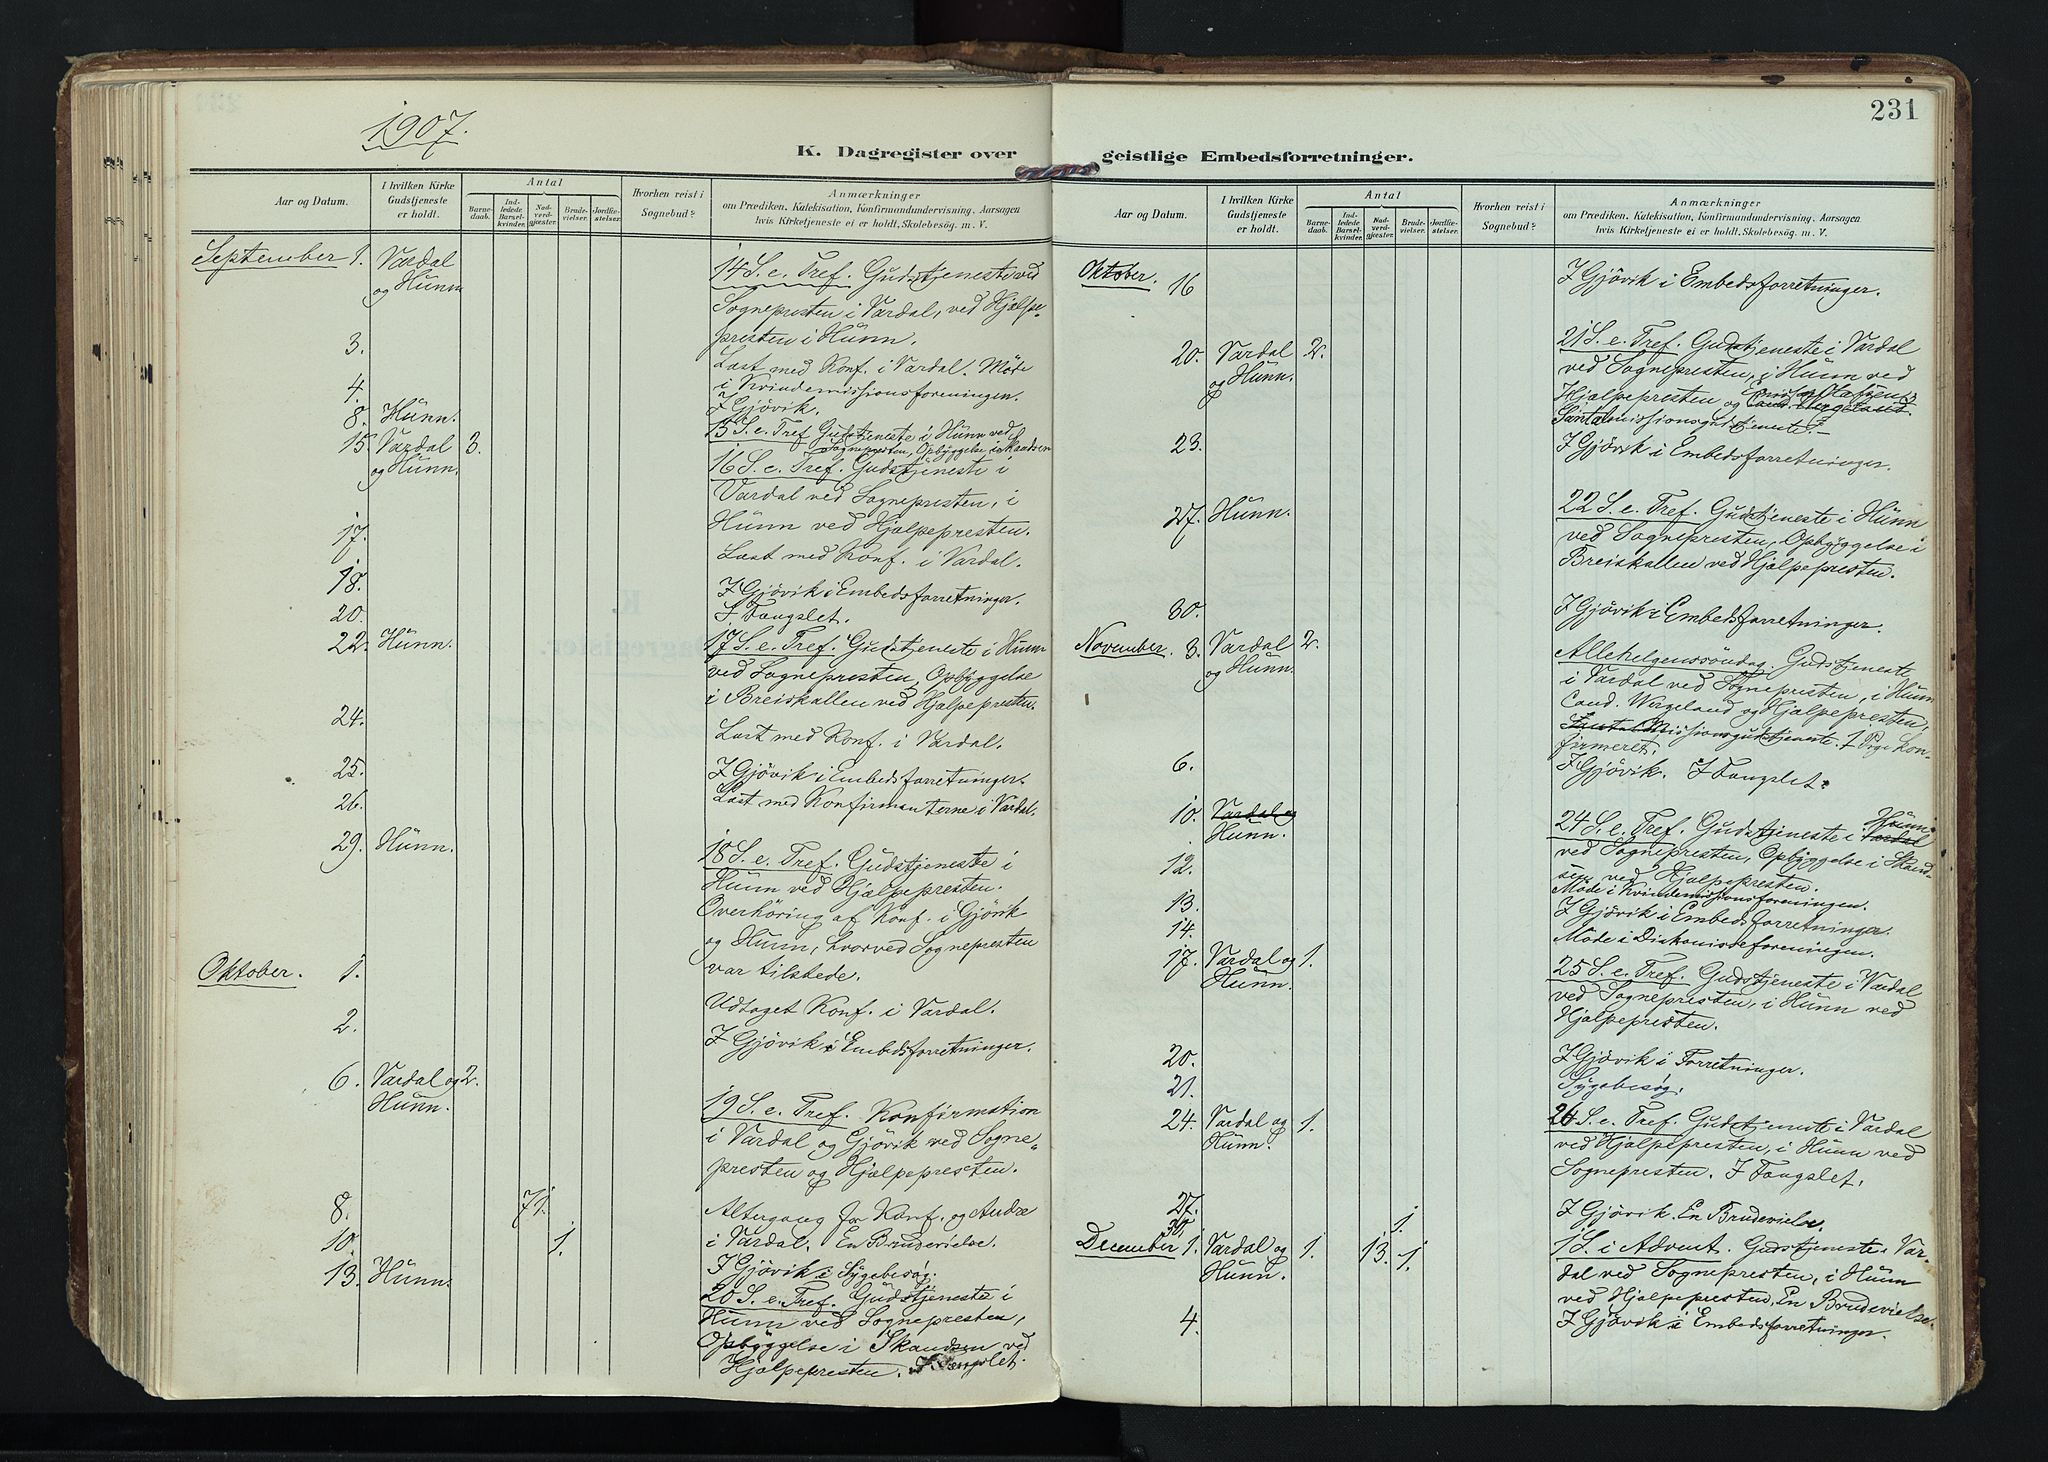 1907.
K. Dagregister over
Aar og Datum.
I hvilken Kirke Gudstjeneste er holdt.
Antal
Barne-daab.
Ind-ledede Barsel-kvinder.
Nad-verd-gjester.
Brude-vielser.
Jordfæ-stelser.
Hvorhen reist i Sognebud?
Anmærkninger
om Prædiken, Katekisation, Konfirmandundervisning, Aarsagen
hvis Kirketjeneste ei er holdt, Skolebesøg m. V.
September 1. Vardal og Hunn
14 S. e. Tref. Gudstjeneste ved
Sognepresten i Vardal, ved Hjælpe-
presten i Hunn.
3. Læst med Konf. i Vardal. Møde
i Kvindemissionsforeningen.
4. I Gjövik.
8. Hunn. 15 S. e. Tref. Gudstjeneste i Hunn ved
Sognepresten, Opbyggelse i Skandsen
15. Vardal og Hunn. 3. 16 S. e. Tref. Gudstjeneste i
Vardal ved Sognepresten, i
Hunn ved Hjælpepresten.
17. Læst med Konf. i Vardal.
18. I Gjövik i Embedsforretninger.
20. I Fængslet.
22. Hunn. 17 S. e. Tref. Gudstjeneste i Hunn
ved Sognepresten, Opbyggelse
i Breiskallen ved Hjælpepresten.
24. Læst med Konf. i Vardal.
25. I Gjövik i Embedsforretninger.
26. Læst med Konfirmanterne i Vardal.
29. Hunn. 18 S. e. Tref. Gudstjeneste i
Hunn ved Hjælpepresten.
Overhöring af Konf. i Gjövik
og Hunn, hvorved Sognepresten
var tilstede.
Oktober. 1. Udtaget Konf. i Vardal.
2. I Gjövik i Embedsforretninger.
6. Vardal og Hunn. 2. 19 S. e. Tref. Konfirmation
i Vardal og Gjövik ved Sogne-
presten og Hjælpepresten.
8. 71. Altergang for Konf. og Andre
10. 1. i Vardal. En Brudevielse.
I Gjövik i Sygebesøg.
13. Hunn. 20 S. e. Tref. Gudstjeneste i
Hunn ved Sognepresten,
Opbyggelse i Skandsen ved
Hjælpepresten. I Fængslet.
231
geistlige Embedsforretninger.
Aar og Datum.
I hvilken Kirke Gudstjeneste er holdt.
Antal
Barne-daab.
Ind-ledede Barsel-kvinder.
Nad-verd-gjester.
Brude-vielser.
Jordfæ-stelser.
Hvorhen reist i Sognebud?
Anmærkninger
om Prædiken, Katekisation, Konfirmandundervisning, Aarsagen
hvis Kirketjeneste ei er holdt, Skolebesøg m. V.
Oktober. 16 I Gjövik i Embedsforretninger.
20. Vardal og Hunn. 2. 21 S. e. Tref. Gudstjeneste i Vardal
ved Sognepresten, i Hunn ved
Hjælpepresten og
Santalmissionsgudstjeneste.
23. I Gjövik i Embedsforretninger.
27. Hunn. 22 S. e. Tref. Gudstjeneste i Hunn
ved Sognepresten, Opbyggelse i
Breiskallen ved Hjælpepresten.
30. I Gjövik i Embedsforretninger.
November. 3. Vardal og Hunn. 2. Allehelgenssöndag. Gudstjeneste
i Vardal ved Sognepresten, i Hunn
Cand. Wergeland og Hjælpepresten,
Missionsgudstjeneste. 1 Pige kon-
firmeret.
6. I Gjövik. I Fængslet.
10. Vardal og Hunn. 24 S. e. Tref. Gudstjeneste i Vardal Hunn
ved Sognepresten, Opbyggelse i Skand-
sen ved Hjælpepresten.
12. Møde i Kvindemissionsforeningen.
13. I Gjövik i Embedsforretninger.
14. Møde i Diakonisseforeningen.
17. Vardal og Hunn. 1. 25 S. e. Tref. Gudstjeneste i Vardal
ved Sognepresten, i Hunn ved
Hjælpepresten.
20. I Gjövik i Forretninger.
21. Sygebesøg.
24. Vardal og Hunn. 1. 26 S. e. Tref. Gudstjeneste i Vardal
ved Hjælpepresten, i Hunn ved
Sognepresten. I Fængslet.
27. I Gjövik.
30. 1. En Brudevielse.
December 1. Vardal og Hunn. 1. 13. 1. 1 S. i Advent. Gudstjeneste i Var-
dal ved Sognepresten, i Hunn
ved Hjælpepresten. En Brudevielse.
4. I Gjövik i Embedsforretninger.